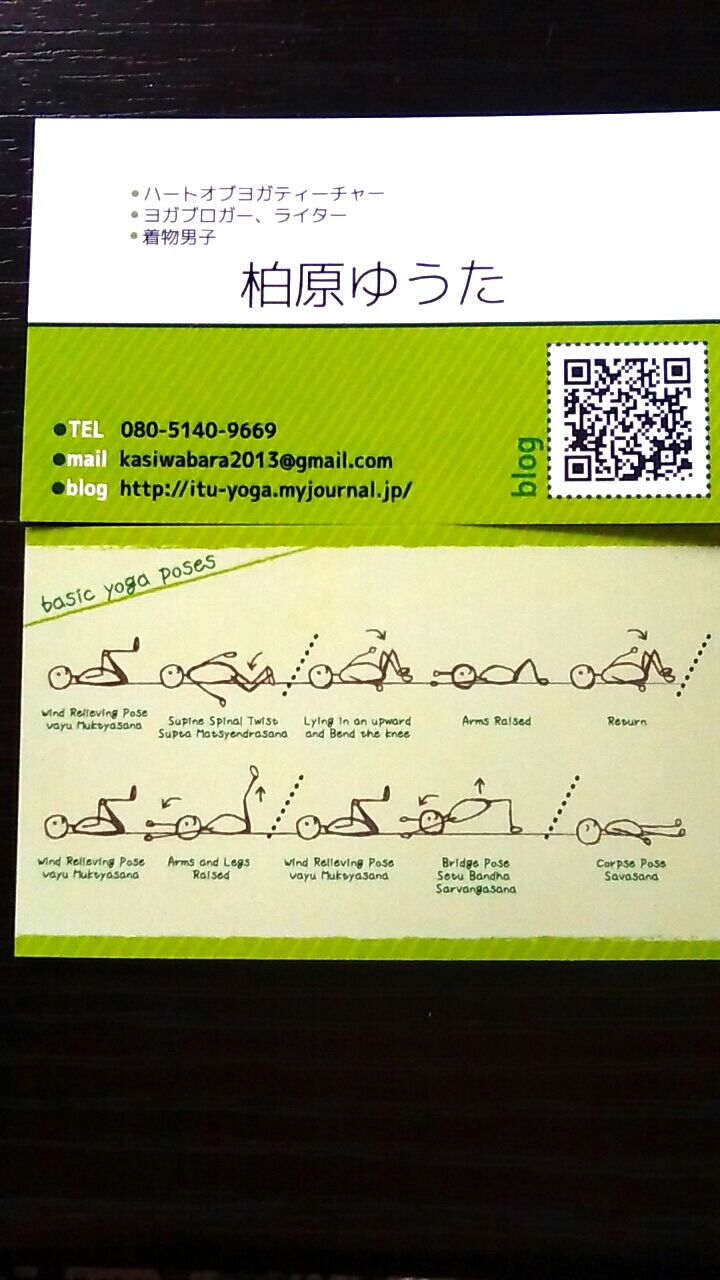 ・ハートオブヨガティーチャー
・ヨガブロガー、ライター
・着物男子
柏原ゆうた
●TEL 080-5140-9669
●mail kasiwabara2013@gmail.com
●blog http://itu-yoga.myjournal.jp/
blog
basic yoga poses
Wind Relieving Pose
Vayu Muktyasana
Supine Spinal Twist
Supta Matsyendrasana
Lying in an upward
and Bend the knee
Arms Raised
Return
Wind Relieving Pose
Vayu Muktyasana
Arms and Legs
Raised
Wind Relieving Pose
Vayu Muktyasana
Bridge Pose
Setu Bandha
Sarvangasana
Corpse Pose
Savasana